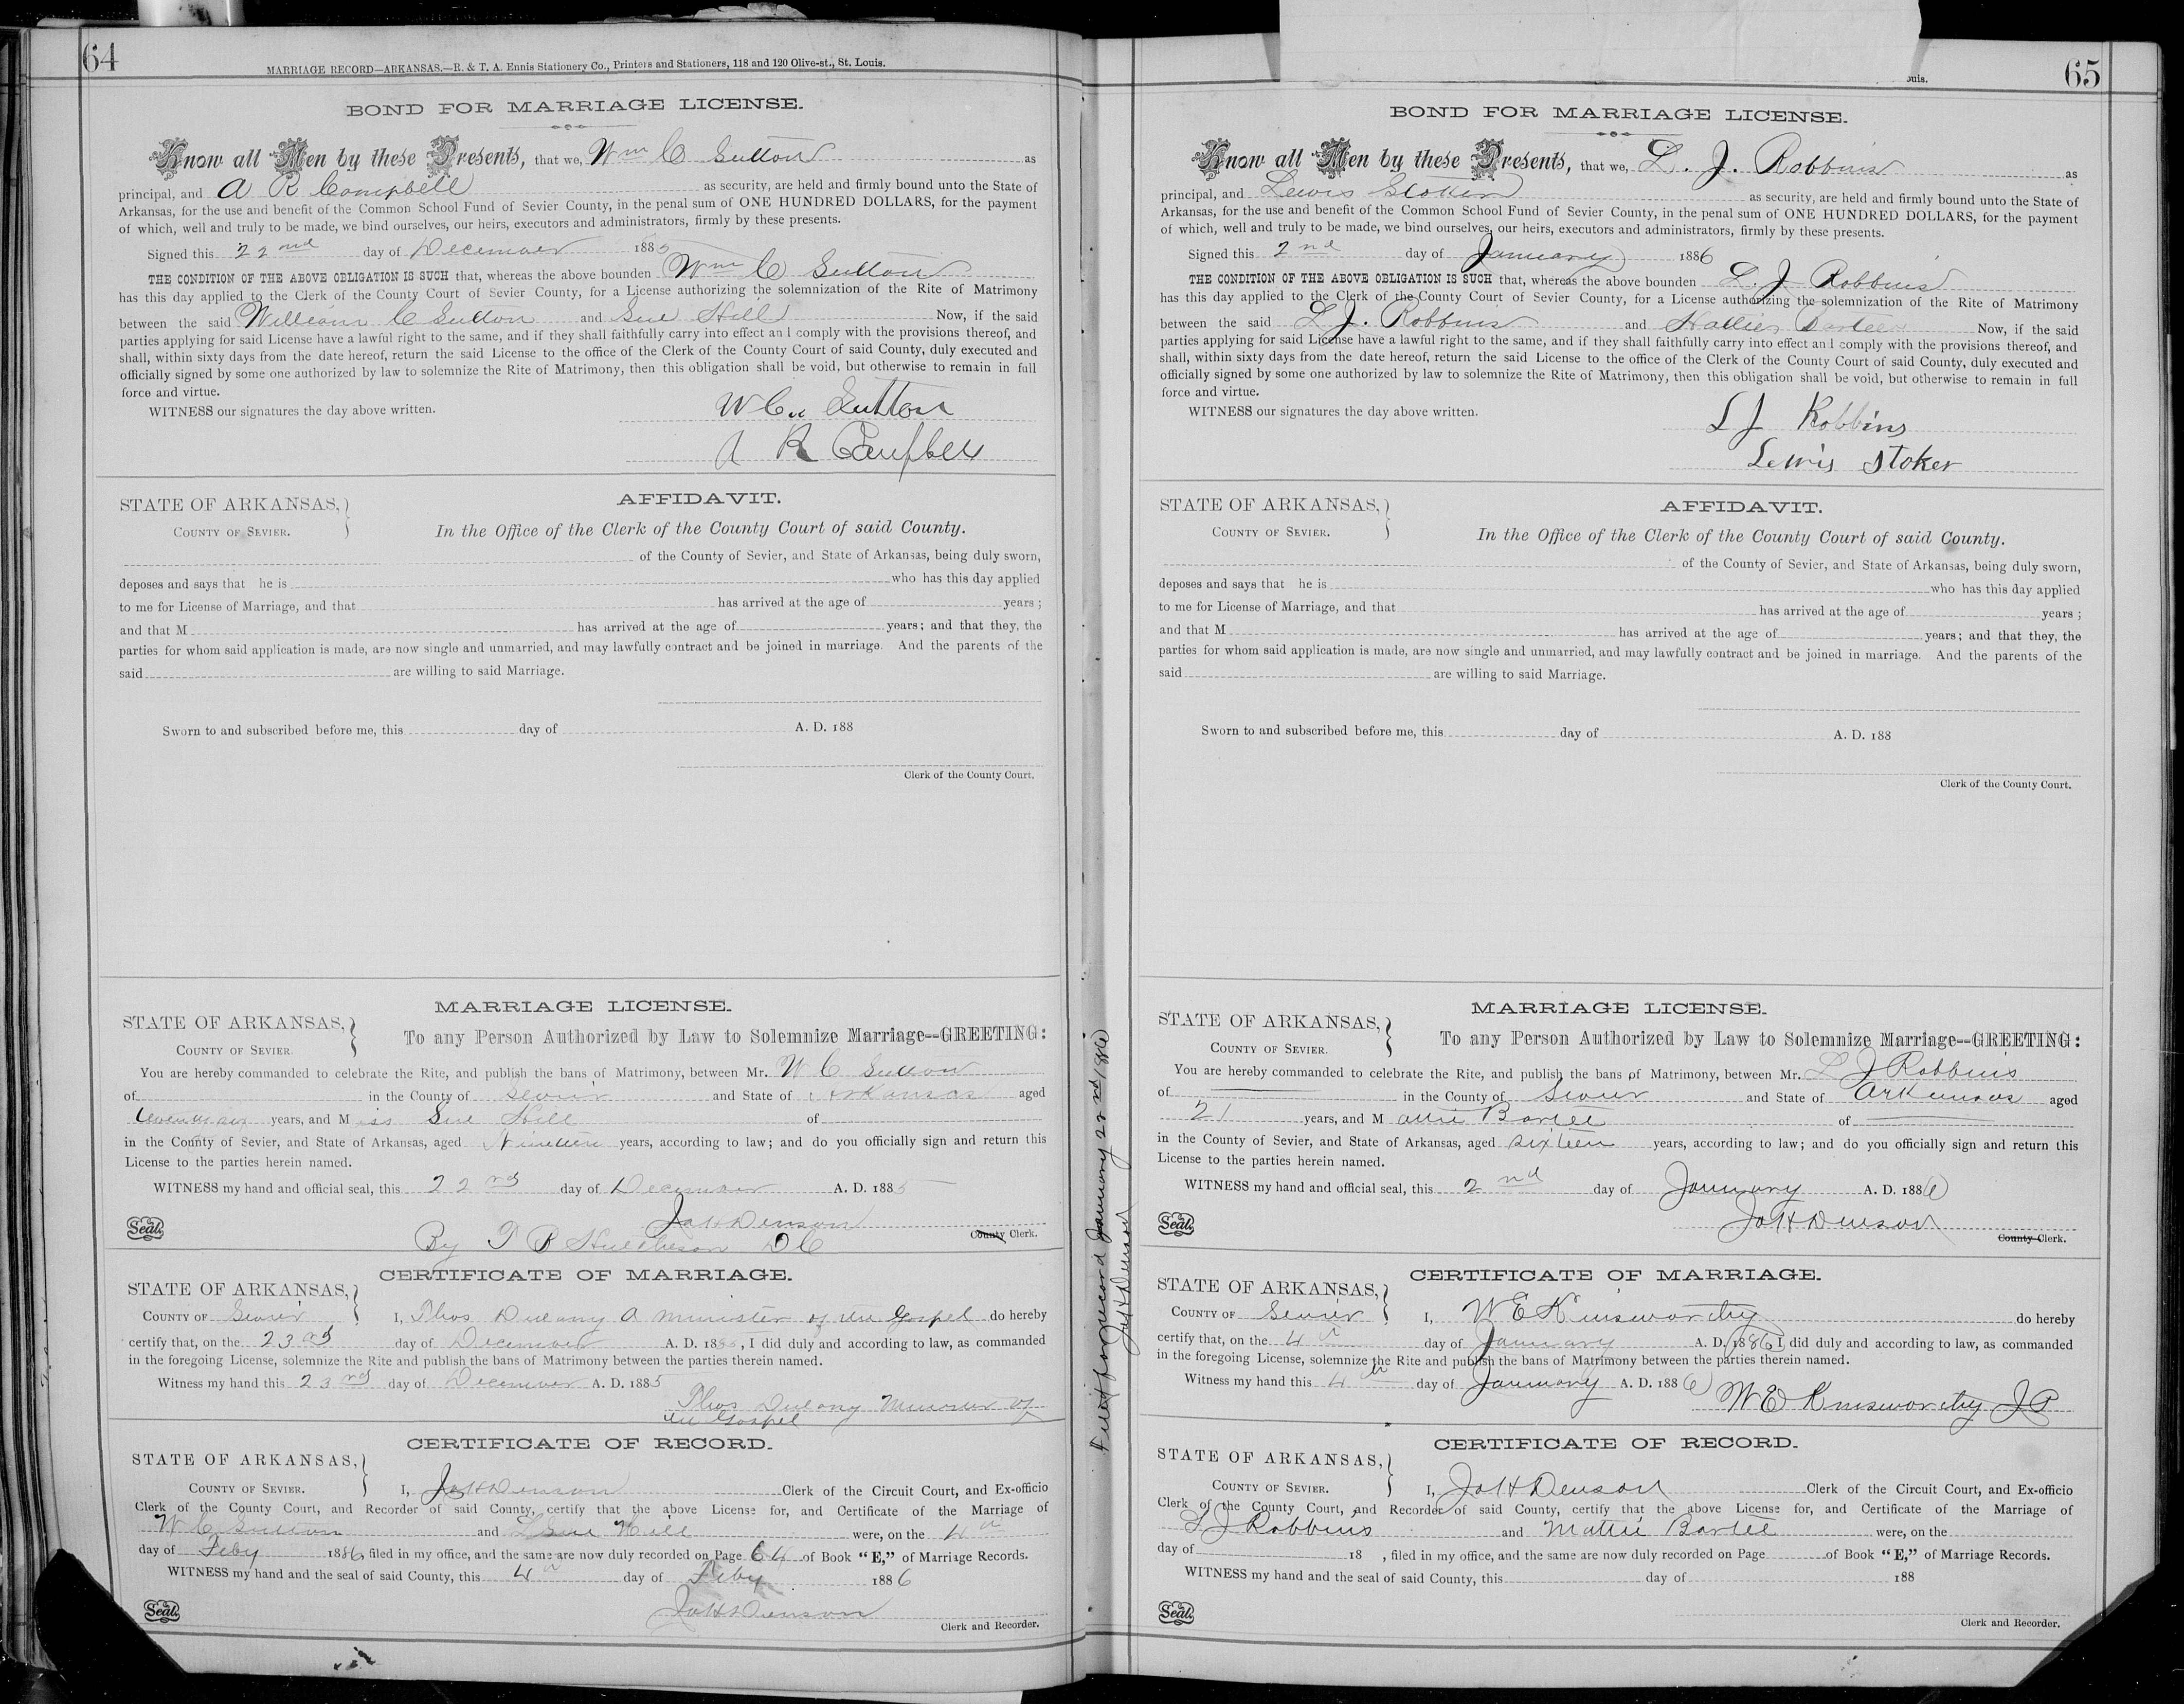 64
MARRIAGE RECORD—ARKANSAS.—R. & T. A. Ennis Stationery Co., Printers and Stationers, 118 and 120 Olive-st., St. Louis.
BOND FOR MARRIAGE LICENSE.
Know all Men by these Presents, that we, Wm C Sutton as
principal, and A R Campbell as security, are held and firmly bound unto the State of
Arkansas, for the use and benefit of the Common School Fund of Sevier County, in the penal sum of ONE HUNDRED DOLLARS, for the payment
of which, well and truly to be made, we bind ourselves, our heirs, executors and administrators, firmly by these presents.
Signed this 22nd day of December 1885
THE CONDITION OF THE ABOVE OBLIGATION IS SUCH that, whereas the above bounden Wm C Sutton
has this day applied to the Clerk of the County Court of Sevier County, for a License authorizing the solemnization of the Rite of Matrimony
between the said William C Sutton and Sue Hill Now, if the said
parties applying for said License have a lawful right to the same, and if they shall faithfully carry into effect an l comply with the provisions thereof, and
shall, within sixty days from the date hereof, return the said License to the office of the Clerk of the County Court of said County, duly executed and
officially signed by some one authorized by law to solemnize the Rite of Matrimony, then this obligation shall be void, but otherwise to remain in full
force and virtue.
WITNESS our signatures the day above written.
W C Sutton
A R Campbell
STATE OF ARKANSAS,
COUNTY OF SEVIER.
AFFIDAVIT.
In the Office of the Clerk of the County Court of said County.
of the County of Sevier, and State of Arkansas, being duly sworn,
deposes and says that he is who has this day applied
to me for License of Marriage, and that has arrived at the age of years;
and that M has arrived at the age of years; and that they, the
parties for whom said application is made, are now single and unmarried, and may lawfully contract and be joined in marriage. And the parents of the
said are willing to said Marriage.
Sworn to and subscribed before me, this day of A. D. 188
Clerk of the County Court.
MARRIAGE LICENSE.
STATE OF ARKANSAS,
COUNTY OF SEVIER.
To any Person Authorized by Law to Solemnize Marriage--GREETING:
You are hereby commanded to celebrate the Rite, and publish the bans of Matrimony, between Mr. W C Sutton
of in the County of Sevier and State of Arkansas aged
years, and M iss Sue Hill of
in the County of Sevier, and State of Arkansas, aged Nineteen years, according to law; and do you officially sign and return this
License to the parties herein named.
WITNESS my hand and official seal, this 22nd day of December A. D. 1885
Seal.
Jo H Denson
County Clerk.
By T B Hutcheson D C
CERTIFICATE OF MARRIAGE.
STATE OF ARKANSAS,
COUNTY OF Sevier I, Thos Dulany A Minister of the Gospel do hereby
certify that, on the 23rd day of December A. D. 1885, I did duly and according to law, as commanded
in the foregoing License, solemnize the Rite and publish the bans of Matrimony between the parties therein named.
Witness my hand this 23rd day of December A. D. 1885
Thos Dulany Minister of
the Gospel
CERTIFICATE OF RECORD.
STATE OF ARKANSAS,
COUNTY OF SEVIER. I, Jo H Denson Clerk of the Circuit Court, and Ex-officio
Clerk of the County Court, and Recorder of said County, certify that the above License for, and Certificate of the Marriage of
W C Sutton and Sue Hill were, on the 4th
day of Feby 1886, filed in my office, and the same are now duly recorded on Page 64 of Book “E,” of Marriage Records.
WITNESS my hand and the seal of said County, this 4th day of Feby 1886
Seal.
Jo H Denson
Clerk and Recorder.
Filed for record January 22nd 1886
Jo H Denson
65
ouis.
BOND FOR MARRIAGE LICENSE.
Know all Men by these Presents, that we, L. J. Robbins as
principal, and Lewis Stoker as security, are held and firmly bound unto the State of
Arkansas, for the use and benefit of the Common School Fund of Sevier County, in the penal sum of ONE HUNDRED DOLLARS, for the payment
of which, well and truly to be made, we bind ourselves, our heirs, executors and administrators, firmly by these presents.
Signed this 2nd day of January 1886
THE CONDITION OF THE ABOVE OBLIGATION IS SUCH that, whereas the above bounden L. J. Robbins
has this day applied to the Clerk of the County Court of Sevier County, for a License authorizing the solemnization of the Rite of Matrimony
between the said L. J. Robbins and Hattie Bartee Now, if the said
parties applying for said License have a lawful right to the same, and if they shall faithfully carry into effect an l comply with the provisions thereof, and
shall, within sixty days from the date hereof, return the said License to the office of the Clerk of the County Court of said County, duly executed and
officially signed by some one authorized by law to solemnize the Rite of Matrimony, then this obligation shall be void, but otherwise to remain in full
force and virtue.
WITNESS our signatures the day above written.
L J Robbins
Lewis Stoker
STATE OF ARKANSAS,
COUNTY OF SEVIER.
AFFIDAVIT.
In the Office of the Clerk of the County Court of said County.
of the County of Sevier, and State of Arkansas, being duly sworn,
deposes and says that he is who has this day applied
to me for License of Marriage, and that has arrived at the age of years;
and that M has arrived at the age of years; and that they, the
parties for whom said application is made, are now single and unmarried, and may lawfully contract and be joined in marriage. And the parents of the
said are willing to said Marriage.
Sworn to and subscribed before me, this day of A. D. 188
Clerk of the County Court.
MARRIAGE LICENSE.
STATE OF ARKANSAS,
COUNTY OF SEVIER.
To any Person Authorized by Law to Solemnize Marriage--GREETING:
You are hereby commanded to celebrate the Rite, and publish the bans of Matrimony, between Mr. L J Robbins
of in the County of Sevier and State of Arkansas aged
21 years, and M attie Bartee of
in the County of Sevier, and State of Arkansas, aged sixteen years, according to law; and do you officially sign and return this
License to the parties herein named.
WITNESS my hand and official seal, this 2nd day of January A. D. 1886
Seal.
Jo H Denson
County Clerk.
CERTIFICATE OF MARRIAGE.
STATE OF ARKANSAS,
COUNTY OF Sevier I, W E Kinsworthy do hereby
certify that, on the 4th day of January A. D. 1886 I did duly and according to law, as commanded
in the foregoing License, solemnize the Rite and publish the bans of Matrimony between the parties therein named.
Witness my hand this 4th day of January A. D. 1886
W E Kinsworthy J P
CERTIFICATE OF RECORD.
STATE OF ARKANSAS,
COUNTY OF SEVIER. I, Jo H Denson Clerk of the Circuit Court, and Ex-officio
Clerk of the County Court, and Recorder of said County, certify that the above License for, and Certificate of the Marriage of
L J Robbins and Mattie Bartee were, on the
day of 18 , filed in my office, and the same are now duly recorded on Page of Book “E,” of Marriage Records.
WITNESS my hand and the seal of said County, this day of 188
Seal.
Clerk and Recorder.